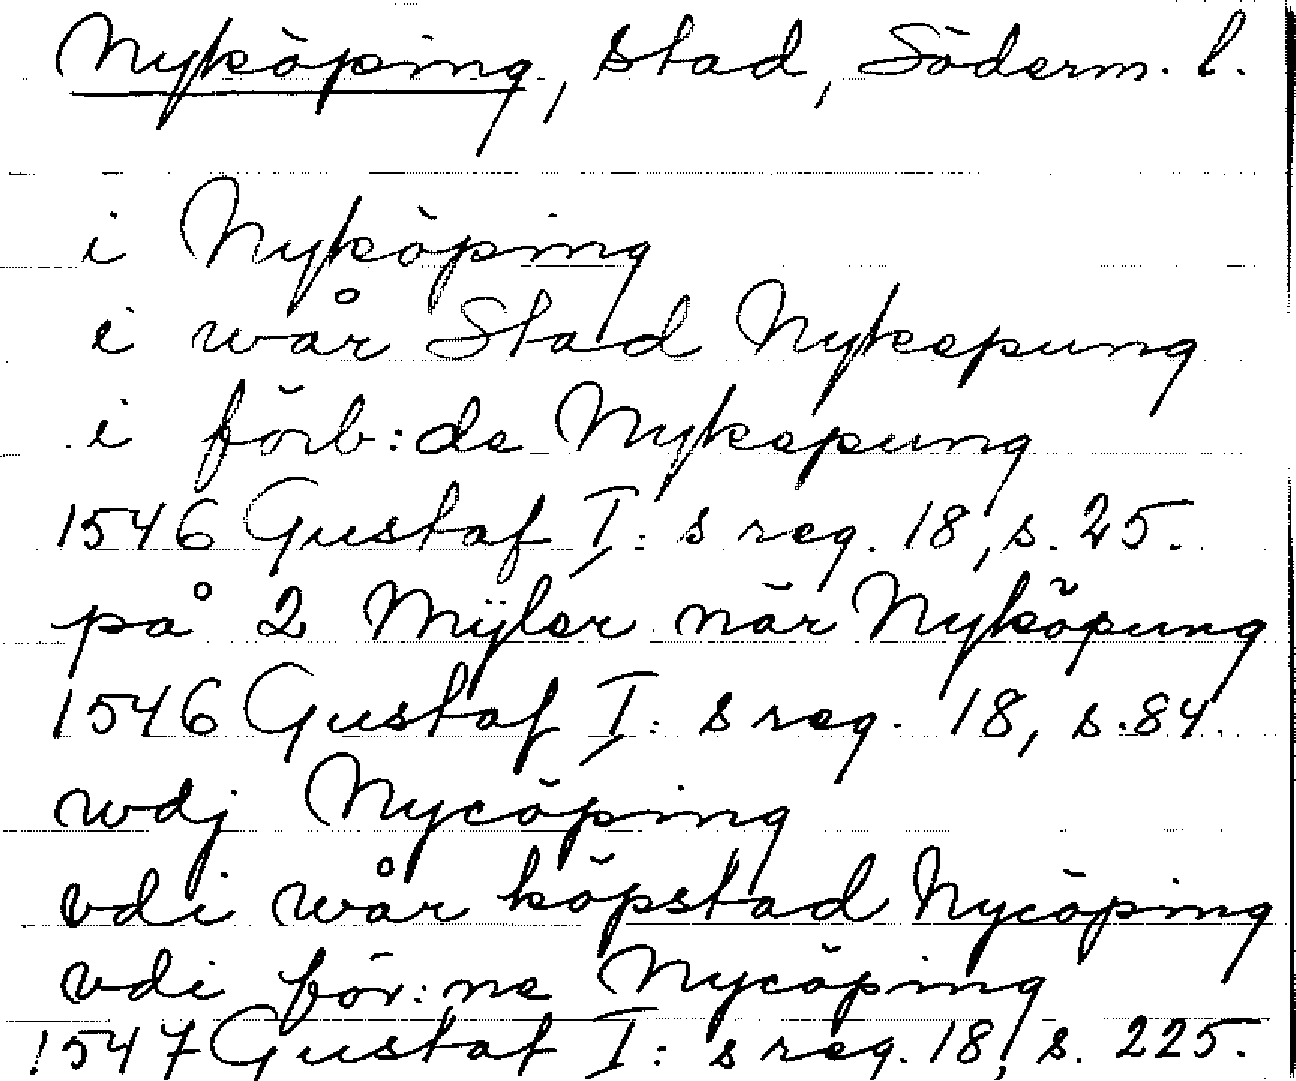 Nyköping, stad, Söderm. l.
i Nyköping
i wår Stad Nykepung
i förb:de Nykepung
1546 Gustaf I:s reg. 18, s. 25.
på 2 Mÿler när Nyköpung
1546 Gustaf I:s reg. 18, s. 84.
wdj Nycöping
vdi wår köpstad Nycöping
vdi för:ne Nycöping
1547 Gustaf I:s reg. 18, s. 225.